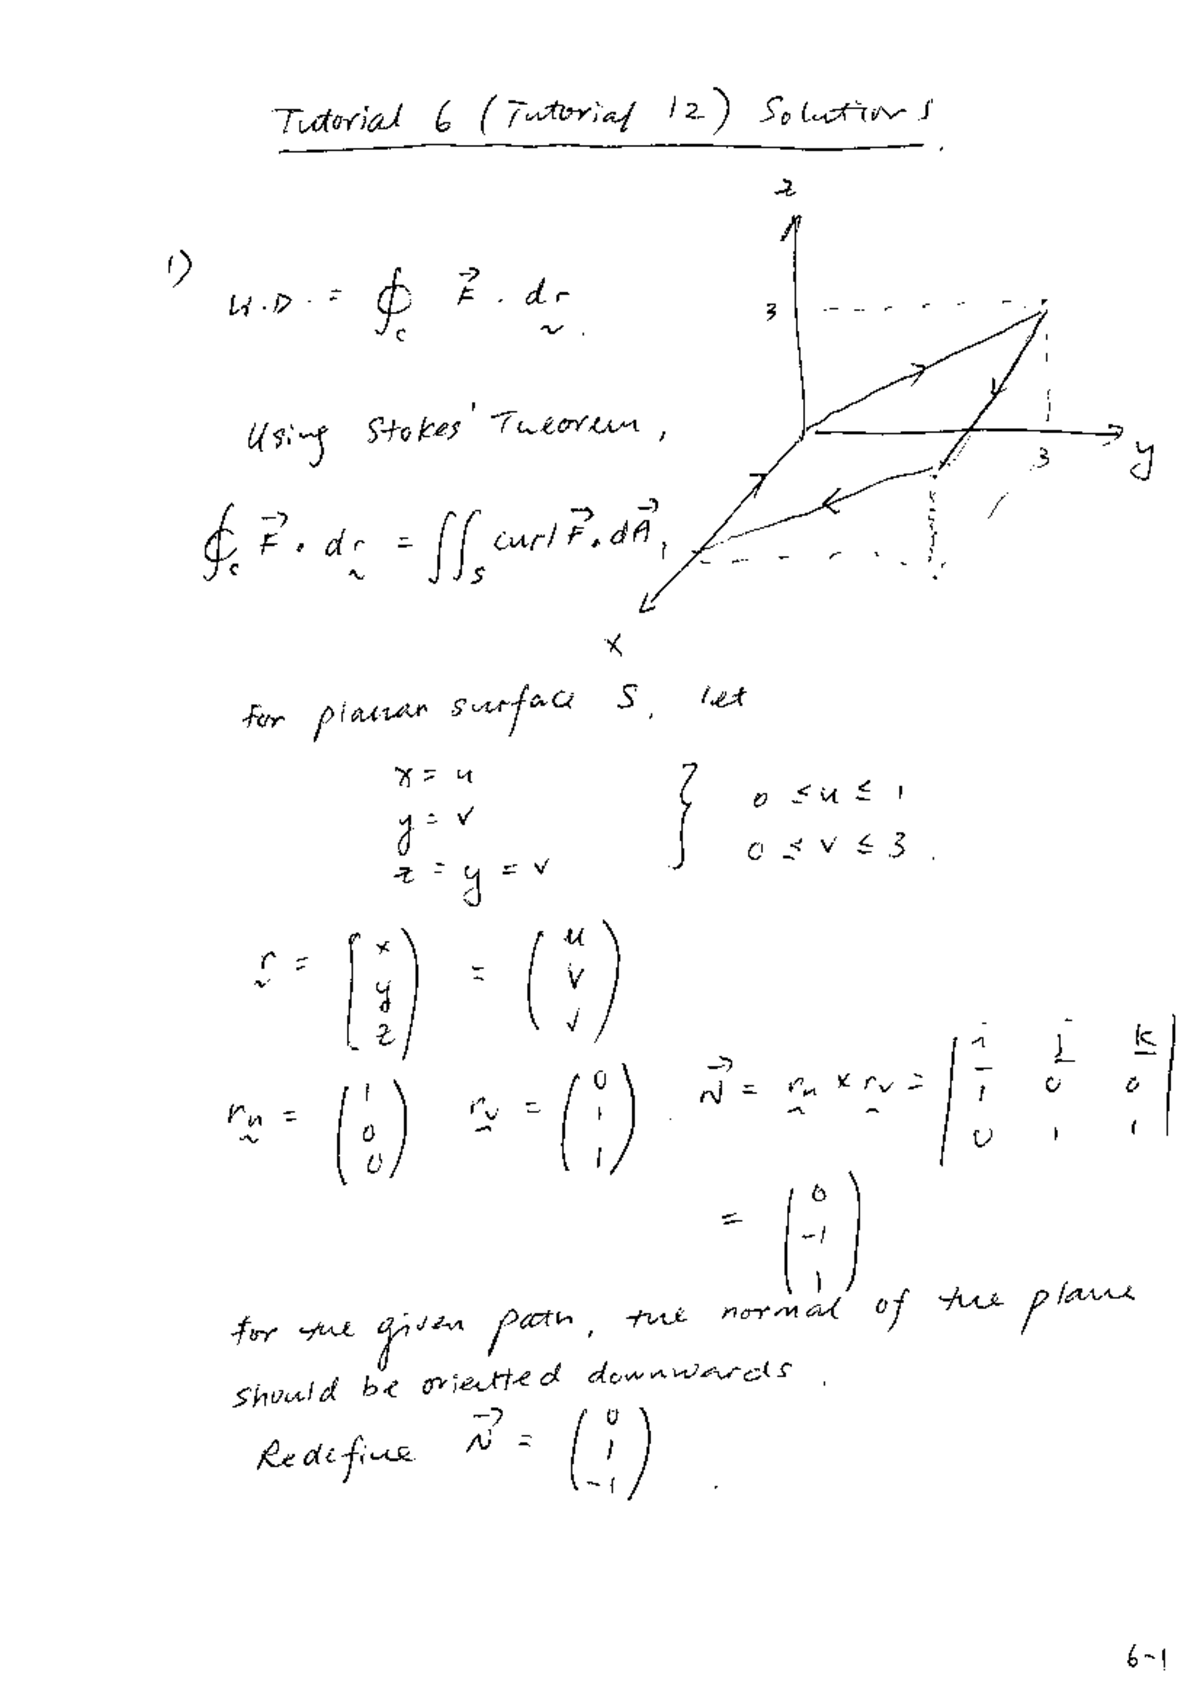 Tutorial 6 (Tutorial 12) Solutions.
z
1)
W.D. = ∮c F⃗ . dr̰.
3
Using Stokes' Theorem,
3
y
∮c F⃗ . dr̰ = ∬S curl F⃗ . dA⃗,
x
For planar surface S, let
x = u
y = v
z = y = v
} 0 ≤ u ≤ 1
0 ≤ v ≤ 3.
r̰ = (x y z) = (u v v)
r̰u = (1 0 0) r̰v = (0 1 1). N⃗ = r̰u × r̰v = | i j k |
| 1 0 0 |
| 0 1 1 |
= (0 -1 1)
For the given path, the normal of the plane
should be orientted downwards.
Redefine N⃗ = (0 1 -1).
6-1